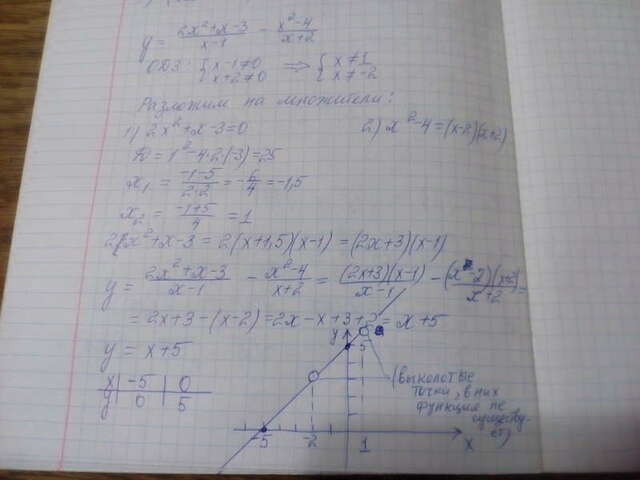 y = (2x²+x-3)/(x-1) - (x²-4)/(x+2)
ОДЗ: { x-1≠0 ⟹ { x≠1
x+2≠0 x≠-2
Разложим на множители:
1) 2x²+x-3=0 2) x²-4=(x-2)(x+2)
D=1²-4·2·(-3)=25
x₁ = (-1-5)/(2·2) = -6/4 = -1,5
x₂ = (-1+5)/4 = 1
2x²+x-3 = 2(x+1,5)(x-1) = (2x+3)(x-1)
y = (2x²+x-3)/(x-1) - (x²-4)/(x+2) = ((2x+3)(x-1))/(x-1) - ((x-2)(x+2))/(x+2) =
= 2x+3-(x-2)=2x-x+3+2= x+5
y = x+5
x | -5 | 0
y | 0 | 5
y
5
-5 -2 1 x
(выколотые
точки, в них
функция не
существу-
ет)